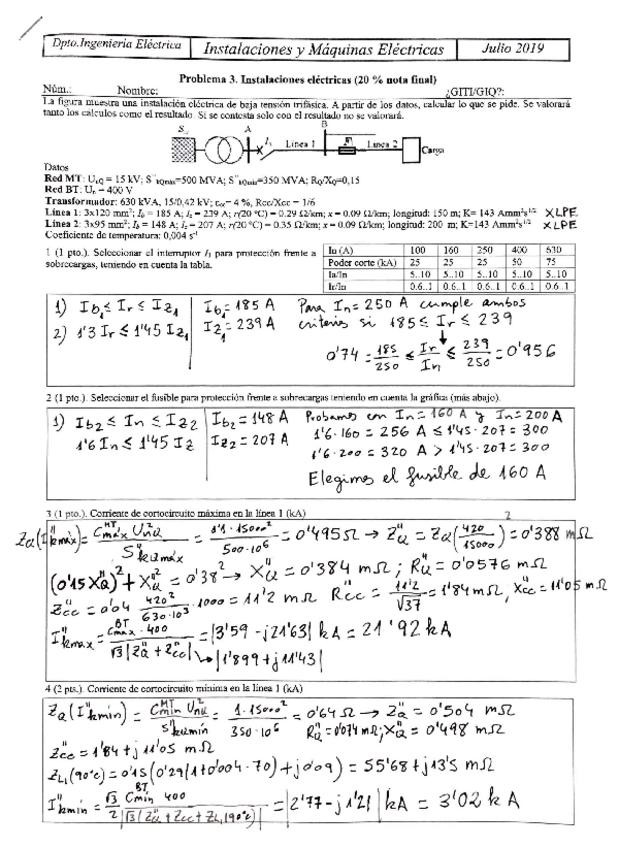 Dpto.Ingeniería Eléctrica | Instalaciones y Máquinas Eléctricas | Julio 2019
Problema 3. Instalaciones eléctricas (20 % nota final)
Núm.: Nombre: ¿GITI/GIQ?:
La figura muestra una instalación eléctrica de baja tensión trifásica. A partir de los datos, calcular lo que se pide. Se valorará
tanto los cálculos como el resultado. Si se contesta solo con el resultado no se valorará.
A I₁ Línea 1 B Línea 2 Carga
Datos
Red MT: UₙQ = 15 kV; S"kQmax=500 MVA; S"kQmin=350 MVA; RQ/XQ=0,15
Red BT: Uₙ = 400 V
Transformador: 630 kVA, 15/0,42 kV; εcc= 4 %, Rcc/Xcc = 1/6
Línea 1: 3x120 mm²; Ib = 185 A; Iz = 239 A; r(20 °C) = 0.29 Ω/km; x = 0.09 Ω/km; longitud: 150 m; K= 143 Amm²s^1/2 XLPE
Línea 2: 3x95 mm²; Ib = 148 A; Iz = 207 A; r(20 °C) = 0.35 Ω/km; x = 0.09 Ω/km; longitud: 200 m; K=143 Amm²s^1/2 XLPE
Coeficiente de temperatura: 0,004 s⁻¹
1 (1 pto.). Seleccionar el interruptor I₁ para protección frente a
sobrecargas, teniendo en cuenta la tabla.
In (A) 100 160 250 400 630
Poder corte (kA) 25 25 25 50 75
Ia/In 5..10 5..10 5..10 5..10 5..10
Ir/In 0.6..1 0.6..1 0.6..1 0.6..1 0.6..1
1) Ib₁ ≤ Ir ≤ Iz₁ Ib₁ = 185 A Para In = 250 A cumple ambos
2) 1'3 Ir ≤ 1'45 Iz₁ Iz₁ = 239 A criterios si 185 ≤ Ir ≤ 239
0'74 = 185/250 ≤ Ir/In ≤ 239/250 = 0'956
2 (1 pto.). Seleccionar el fusible para protección frente a sobrecargas teniendo en cuenta la gráfica (más abajo).
1) Ib2 ≤ In ≤ Iz2 Ib2 = 148 A Probamos con In = 160 A y In = 200 A
1'6 In ≤ 1'45 Iz Iz2 = 207 A 1'6·160 = 256 A ≤ 1'45·207 = 300
1'6·200 = 320 A > 1'45·207 = 300
Elegimos el fusible de 160 A
3 (1 pto.). Corriente de cortocircuito máxima en la línea 1 (kA)
ZQ(I"kmáx) = Cmáx^MT UnQ²/S"kQmáx = 1'1·15000²/500·10⁶ = 0'495 Ω → Z"Q = ZQ(420/15000)² = 0'388 mΩ
(0'15 X"Q)² + X"Q² = 0'38² → X"Q = 0'384 mΩ ; R"Q = 0'0576 mΩ
Z"cc = 0'04 420²/630·10³ · 1000 = 11'2 mΩ R"cc = 11'2/√37 = 1'84 mΩ, X"cc = 11'05 mΩ
I"kmax = Cmax^BT · 400/√3|Z"Q + Z"cc| = |3'59 - j21'63| kA = 21'92 kA
|1'899 + j11'43|
4 (2 pts.). Corriente de cortocircuito mínima en la línea 1 (kA)
ZQ(I"kmín) = Cmín^MT UnQ²/S"kQmín = 1·15000²/350·10⁶ = 0'64 Ω → Z"Q = 0'504 mΩ
R"Q = 0'074 mΩ; X"Q = 0'498 mΩ
Z"cc = 1'84 + j 11'05 mΩ
ZL1(90°c) = 0'15(0'29(1+0'004·70) + j0'09) = 55'68 + j13'5 mΩ
I"kmín = √3 Cmín^BT 400/2|√3(Z"Q + Zcc + ZL1(90°c)| = |2'77 - j1'21| kA = 3'02 kA